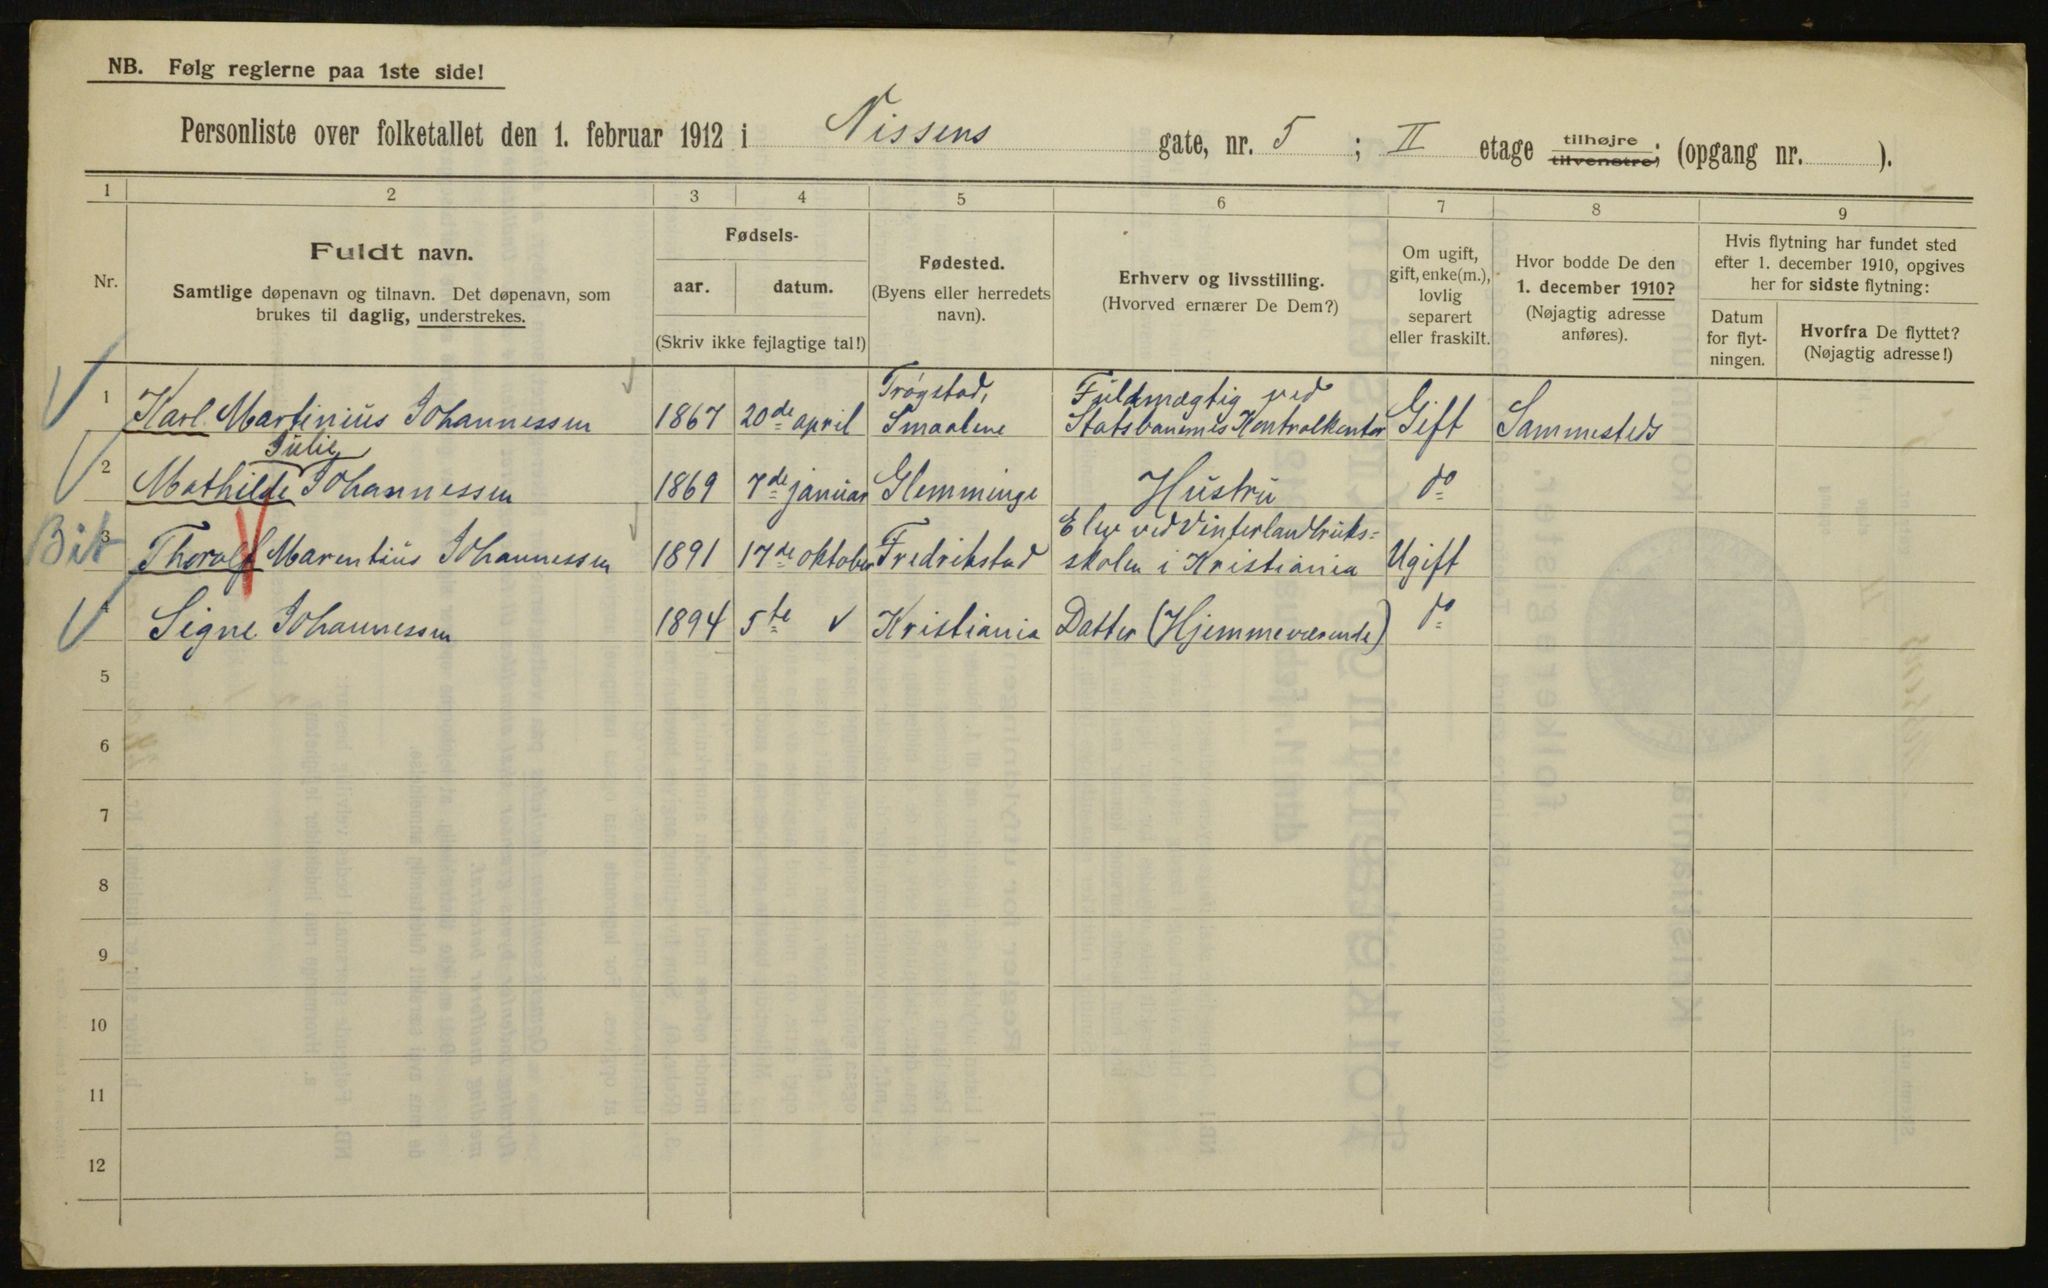 NB. Følg reglerne paa 1ste side!
Personliste over folketallet den 1. februar 1912 i Nissens gate, nr. 5 ; II etage tilhøjre, tilvenstre, (opgang nr. ).
1 2 3 4 5 6 7 8 9
Nr.
Fuldt navn.
Samtlige døpenavn og tilnavn. Det døpenavn, som
brukes til daglig, understrekes.
Fødsels-
aar. datum.
(Skriv ikke fejlagtige tal!)
Fødested.
(Byens eller herredets
navn).
Erhverv og livsstilling.
(Hvorved ernærer De Dem?)
Om ugift,
gift, enke(m.),
lovlig
separert
eller fraskilt.
Hvor bodde De den
1. december 1910?
(Nøjagtig adresse
anføres).
Hvis flytning har fundet sted
efter 1. december 1910, opgives
her for sidste flytning:
Datum
for flyt-
ningen.
Hvorfra De flyttet?
(Nøjagtig adresse!)
Trøgstad, Fuldmægtig ved
1 Karl Martinius Johannessen 1867 20de april Smaalene Statsbanernes Kontrolkontor Gift Sammesteds
Julie
2 Mathilde Johannessen 1869 7de januar Glemminge Hustru do
Elev ved Vinterlandbruks=
Bit 3 Thorolf Marentius Johannessen 1891 17de oktober Fredrikstad skolen i Kristiania Ugift
4 Signe Johannessen 1894 5te Kristiania Datter (Hjemmeværende) do
5
6
7
8
9
10
11
12